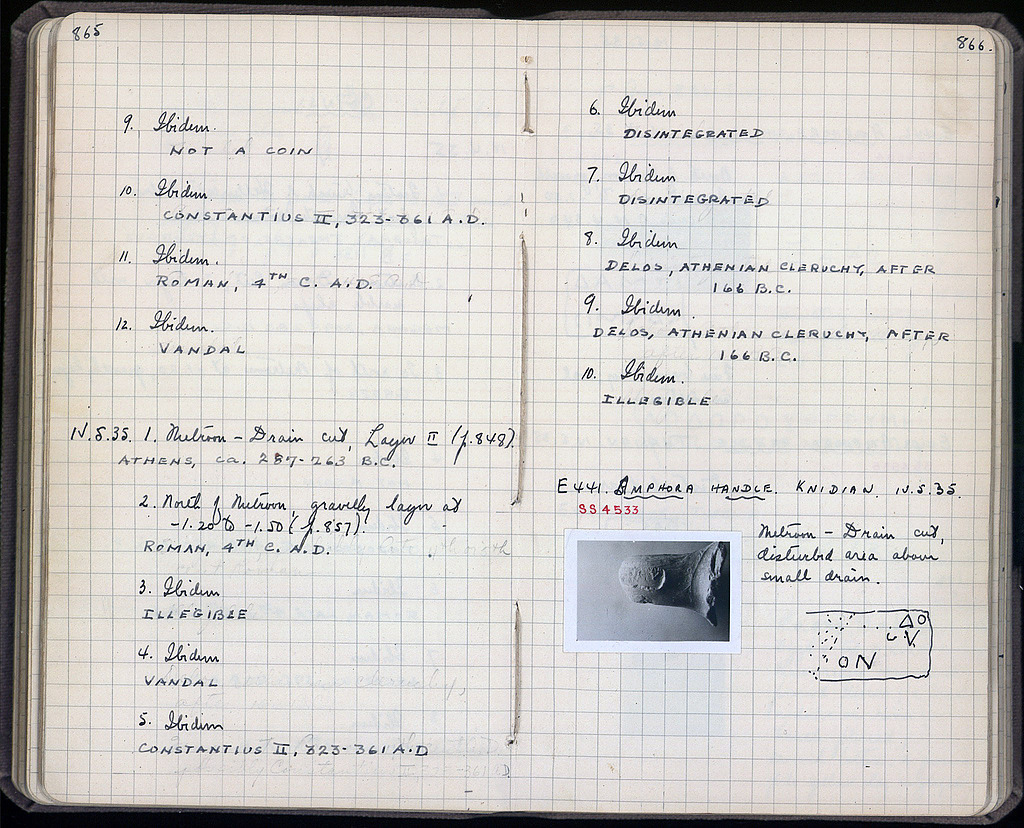 865
9. Ibidem.
NOT A COIN
10. Ibidem.
CONSTANTIUS II, 323-361 A.D.
11. Ibidem.
ROMAN, 4TH C. A.D.
12. Ibidem.
VANDAL
IV.5.35. 1. Metroon – Drain cut, Layer II (p.848).
ATHENS, ca. 287-263 B.C.
2. North of Metroon, gravelly layer at
-1.20 to -1.50 (p.857).
ROMAN, 4TH C. A.D.
3. Ibidem
ILLEGIBLE
4. Ibidem
VANDAL
5. Ibidem
CONSTANTIUS II, 323-361 A.D
866.
6. Ibidem
DISINTEGRATED
7. Ibidem
DISINTEGRATED
8. Ibidem
DELOS, ATHENIAN CLERUCHY, AFTER
166 B.C.
9. Ibidem.
DELOS, ATHENIAN CLERUCHY, AFTER
166 B.C.
10. Ibidem.
ILLEGIBLE
E 441. AMPHORA HANDLE. KNIDIAN. IV.5.35.
SS 4533
Metroon – Drain cut,
disturbed area above
small drain.
ΔΟ
V
ΟΝ